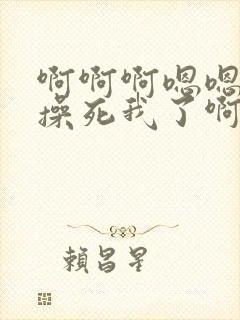 啊啊啊嗯嗯
操死我了啊
賴昌星